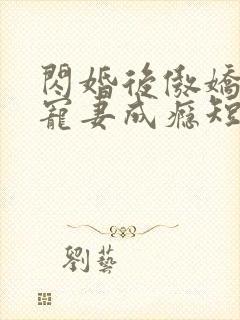 閃婚後傲嬌
寵妻成癮短
劉藝